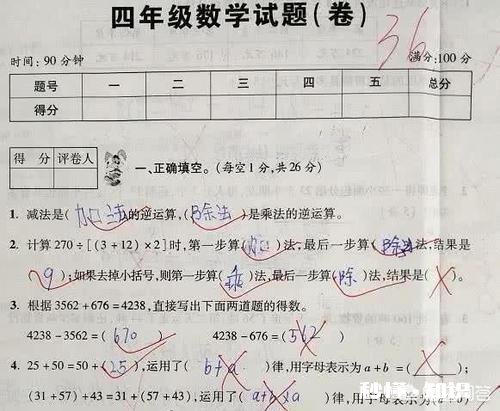 四年级数学试题(卷)
36
时间:90分钟 满分:100分
题号 一 二 三 四 五 总分
得分
得 分 评卷人
一、正确填空。(每空1分,共26分)
1. 减法是(加法的逆运算,(除法)是乘法的逆运算。
2. 计算270÷[(3+12)×2]时,第一步算(加)法,最后一步算(除法)法,结果是
(9);如果去掉小括号,则第一步算(乘)法,最后一步算(除)法,结果是( )。
3. 根据3562+676=4238,直接写出下面两道题的得数。
4238-3562=(670) 4238-676=(562)
4. 25+50=50+(25),运用了(b+a)律,用字母表示为a+b=( );
(31+57)+43=31+(57+43),运用了(a+b×a)律,用字母表示为(a+b)
秒懂 知识